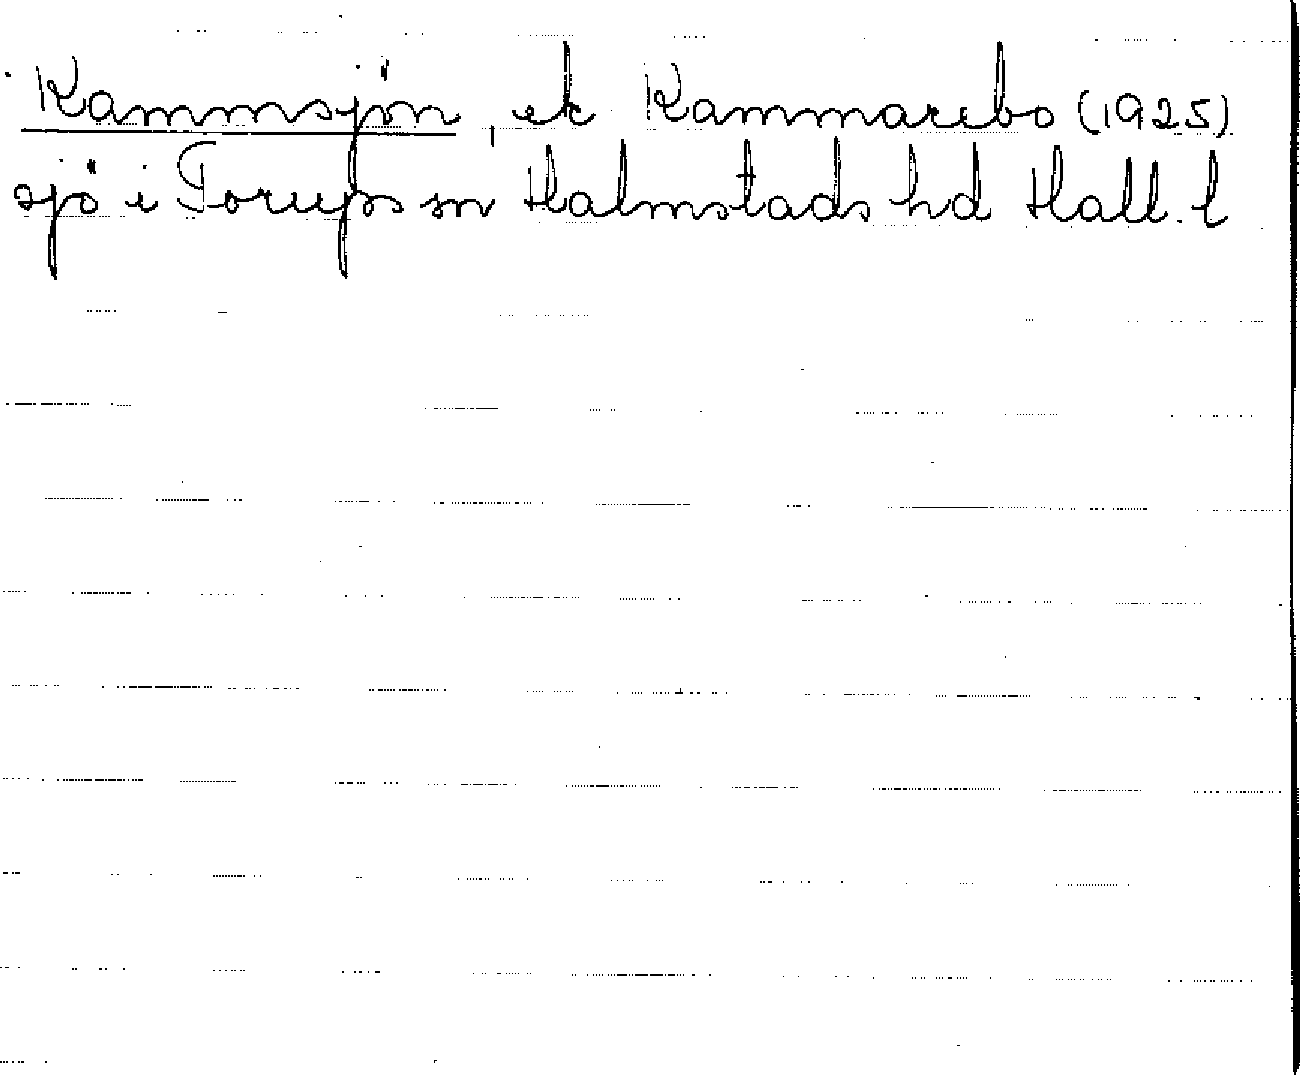 Kammsjön, ek Kammarebo (1925)
sjö i Torups sn Halmstads hd Hall. l